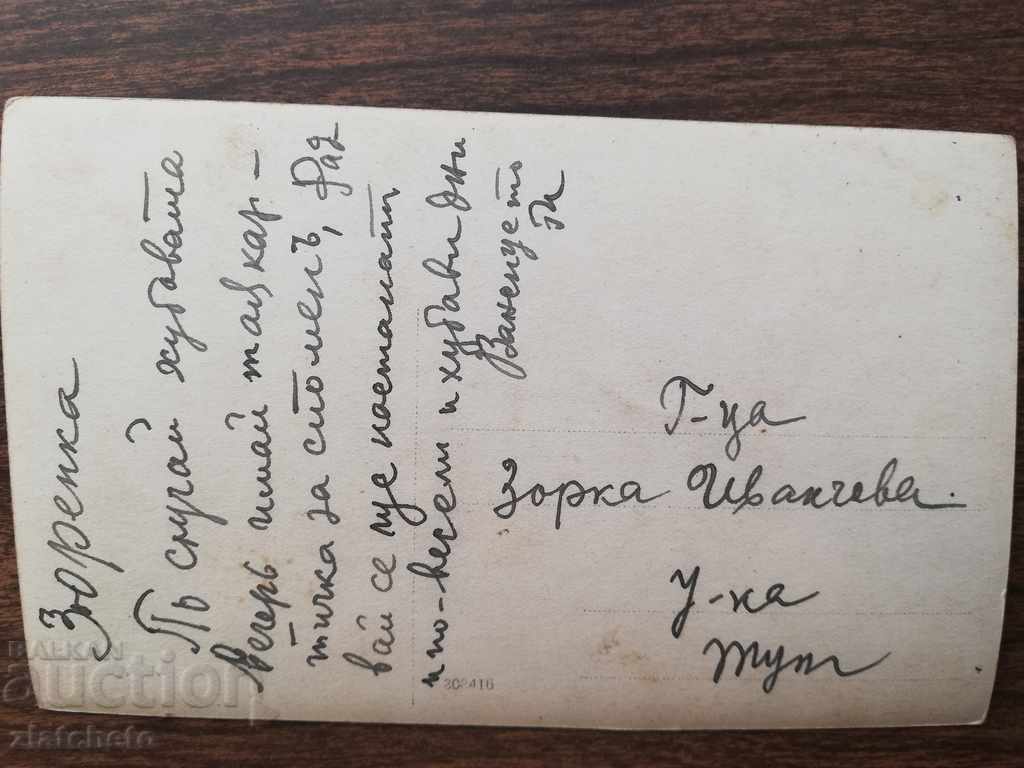 Зорепка
По случай хубавата
вечеръ имай тац кар-
тичка за споменъ, Рад
вай се ще настанат
и по-весели и хубави дни
Ваненцето
ти
Г-ца
Зорка Иванчева.
У-ка
тут
308416
BALKAN
auction
zlatcheto